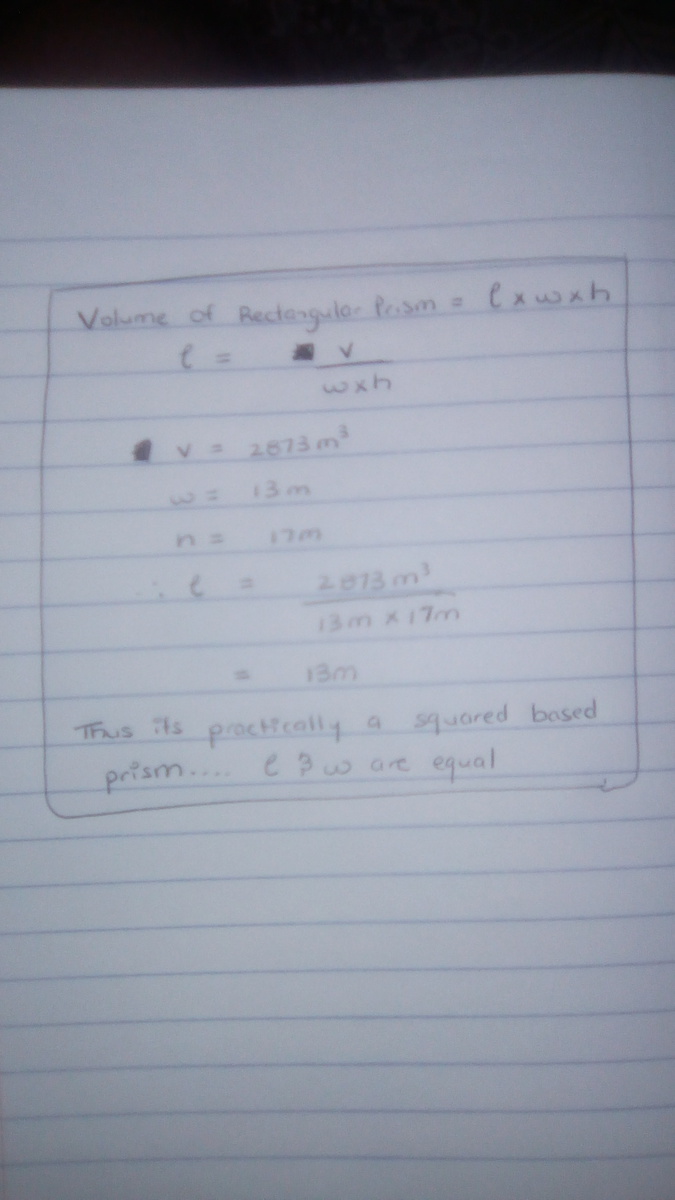 Volume of Rectangular Prism = l x w x h
l = v
w x h
v = 2873 m³
w = 13 m
h = 17m
∴ l = 2873 m³
13m x 17m
= 13m
Thus its practically a squared based
prism.... l & w are equal